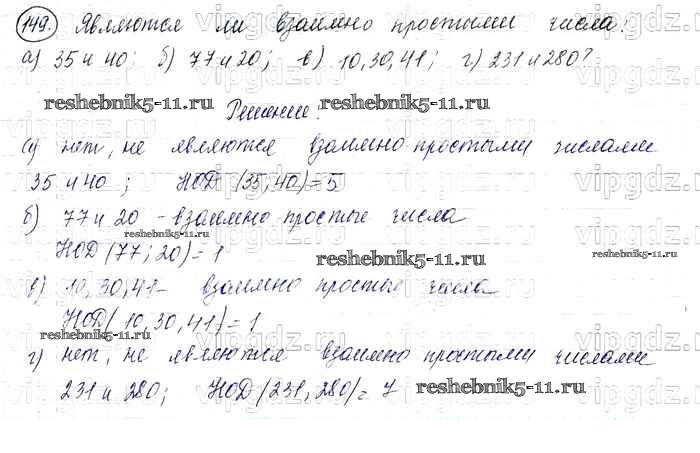 149. Являются ли взаимно простыми числа:
а) 35 и 40; б) 77 и 20; в) 10, 30, 41; г) 231 и 280?
reshebnik5-11.ru Решение: reshebnik5-11.ru
а) нет, не являются взаимно простыми числами
35 и 40 ; НОД (35, 40) = 5
б) 77 и 20 - взаимно простые числа
reshebnik5-11.ru
НОД (77; 20) = 1
reshebnik5-11.ru reshebnik5-11.ru
в) 10, 30, 41 - взаимно простые числа
НОД ( 10, 30, 41) = 1
reshebnik5-11.ru
г) нет, не являются взаимно простыми числами
231 и 280; НОД (231, 280) = 7 reshebnik5-11.ru
vipgdz.ru